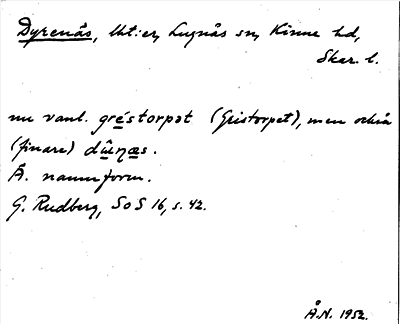 Dyrenäs, lht:er, Lugnås sn, Kinne hd,
Skar. l.
nu vanl. gréstorpət (Gristorpet), men också
(finare) dŷnæs.
Ä. namnform.
G. Rudberg, SoS 16, s. 42.
Å.N. 1952.